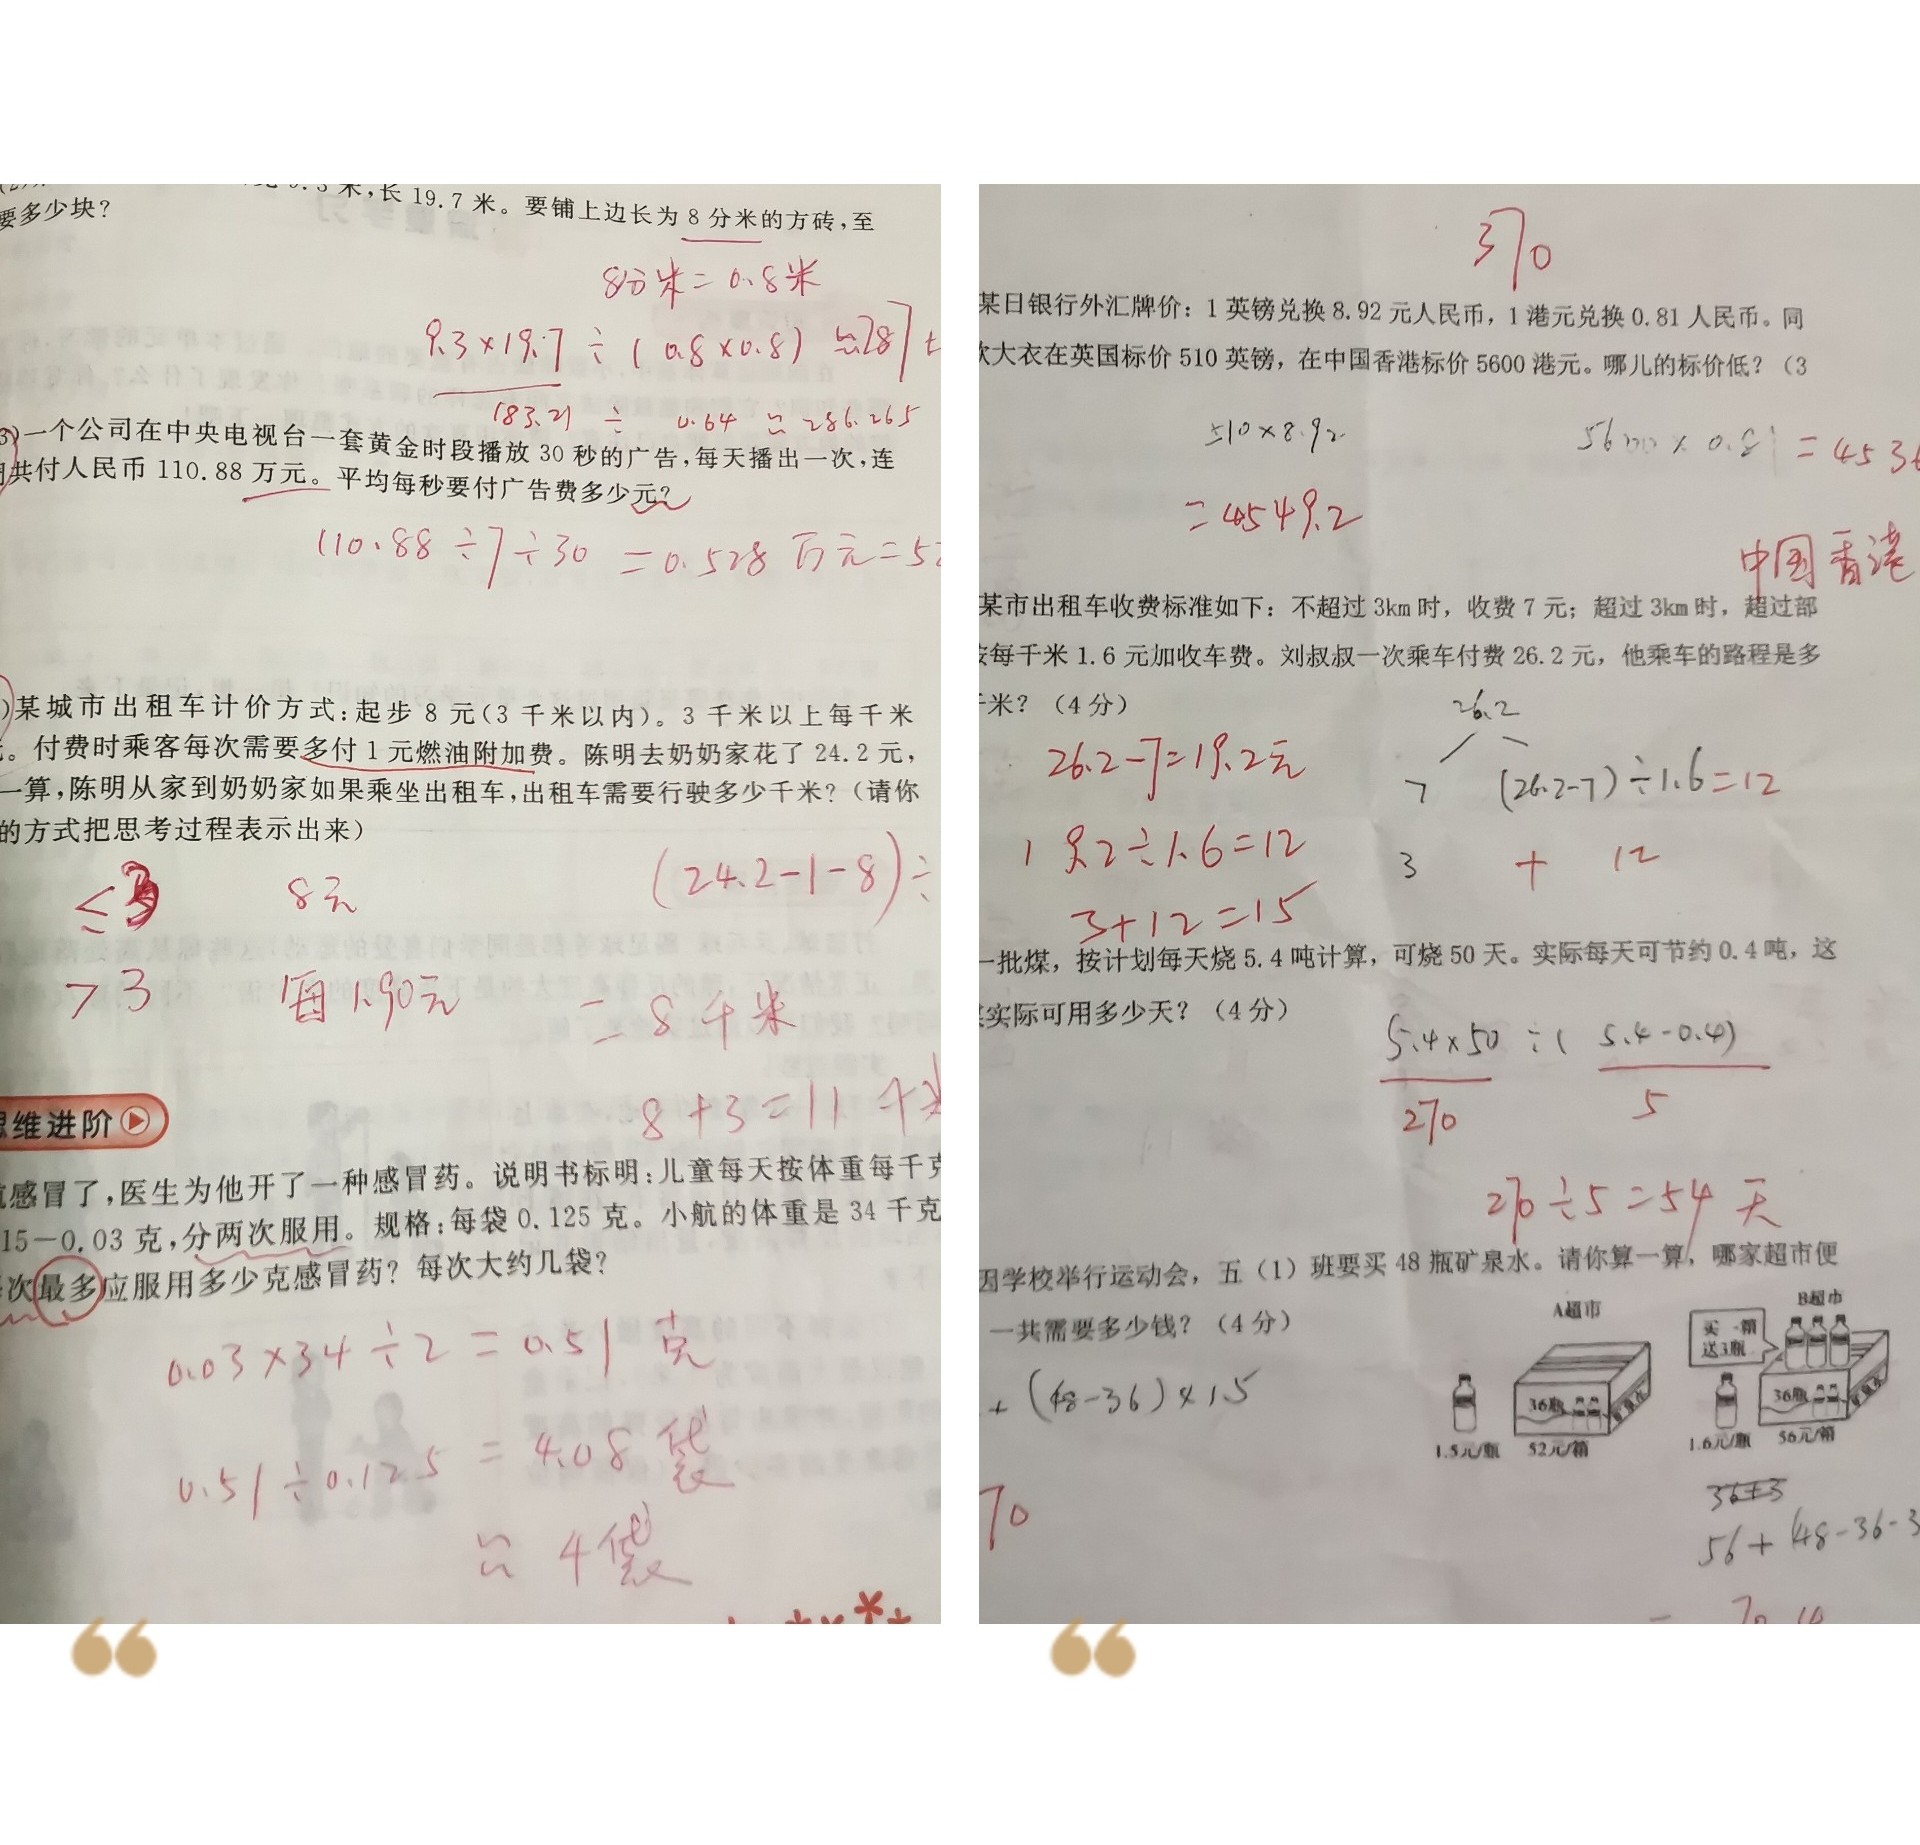 米,长 19.7 米。要铺上边长为 8 分米的方砖,至
要多少块?
8分米=0.8米
9.3×19.7÷(0.8×0.8)≈287
183.21 ÷ 0.64 ≈ 286.265
3)一个公司在中央电视台一套黄金时段播放 30 秒的广告,每天播出一次,连
共付人民币 110.88 万元。平均每秒要付广告费多少元?
110.88÷7÷30 =0.528 万元=5
)某城市出租车计价方式:起步 8 元(3 千米以内)。3 千米以上每千米
。付费时乘客每次需要多付 1 元燃油附加费。陈明去奶奶家花了 24.2 元,
一算,陈明从家到奶奶家如果乘坐出租车,出租车需要行驶多少千米?(请你
的方式把思考过程表示出来)
≤3 8元 (24.2-1-8)÷
>3 每1.90元 =8千米
8+3=11千米
思维进阶
感冒了,医生为他开了一种感冒药。说明书标明:儿童每天按体重每千克
15-0.03 克,分两次服用。规格:每袋 0.125 克。小航的体重是 34 千克
次最多应服用多少克感冒药?每次大约几袋?
0.03×34÷2=0.51 克
0.51÷0.125 =4.08 袋
≈ 4袋
370
某日银行外汇牌价:1 英镑兑换 8.92 元人民币,1 港元兑换 0.81 人民币。同
大衣在英国标价 510 英镑,在中国香港标价 5600 港元。哪儿的标价低?(3
510×8.92 5600×0.81=4536
=4549.2
中国香港
某市出租车收费标准如下:不超过 3km 时,收费 7 元;超过 3km 时,超过部
按每千米 1.6 元加收车费。刘叔叔一次乘车付费 26.2 元,他乘车的路程是多
千米?(4 分)
26.2
26.2-7=19.2元 7 (26.2-7)÷1.6=12
19.2÷1.6=12 3 + 12
3+12=15
一批煤,按计划每天烧 5.4 吨计算,可烧 50 天。实际每天可节约 0.4 吨,这
实际可用多少天?(4 分)
5.4×50 ÷( 5.4-0.4)
270 5
270÷5=54 天
因学校举行运动会,五(1)班要买 48 瓶矿泉水。请你算一算,哪家超市便
一共需要多少钱?(4 分)
A超市 B超市
买一箱
送3瓶
36瓶 36瓶
1.5元/瓶 52元/箱 1.6元/瓶 56元/箱
+(48-36)×1.5
36+3
70
56+(48-36-3